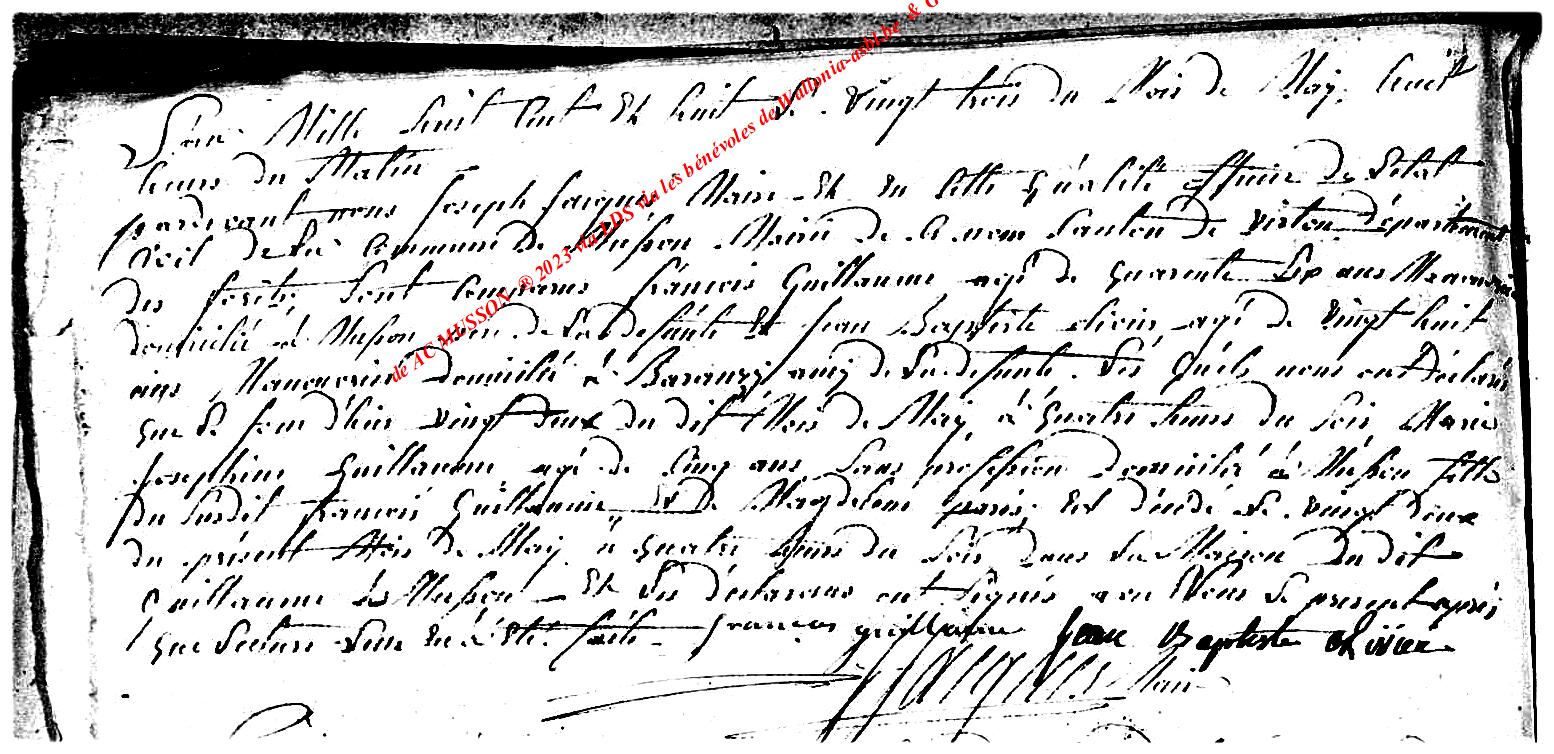 L'an Mille huit Cent Et huit le vingt trois du Mois de May, huit
heures du Matin
pardevant nous Joseph Maire Et En Cette qualité officier de l'Etat
Civil de La Commune de Musson Mairie de Ce nom Canton de virton département
des forêts Sont Comparus françois Guillaume agé de quarante Six ans
domicilié à Musson de La defunte Et Jean Baptiste agé de vingt huit
ans domicilié à Baranzy amy de La defunte. Les quels nous ont déclaré
que Le Jour d'hier vingt deux du dit Mois de May à quatre heures du Soir Marie
Josephine Guillaume agé de Cinq ans Sans profession domicilié à Musson fille
du Susdit françois Guillaume Et de Magdelene paris, Est décédé Le vingt deux
du présent Mois de May à quatre heures du Soir dans La Maison du dit
Guillaume à Musson Et Les déclarans ont Signés avec Nous Le present après
que Lecture Leur En à Eté faite françois guillaume Jean Baptiste olivier
Maire
de AC MUSSON ® 2023 via LDS via les bénévoles de Wallonia-asbl.be & G